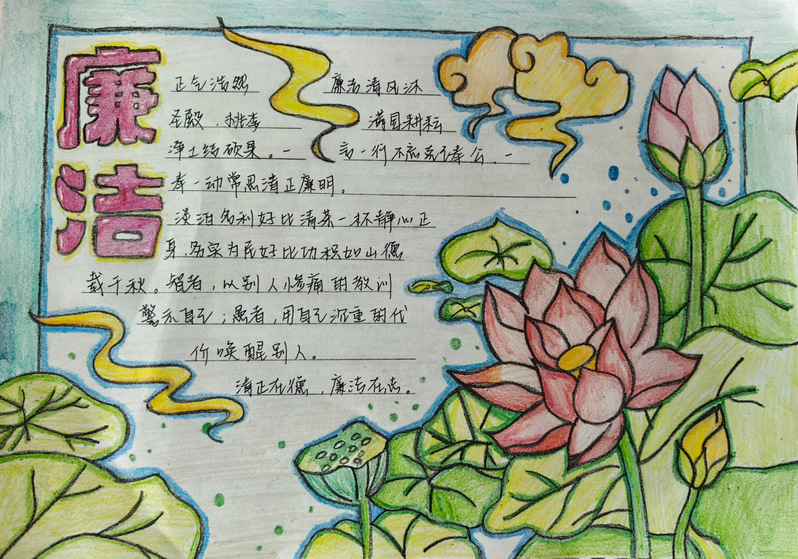 廉洁
正气浩然 廉洁清风沐
圣殿，桃李 满园耕耘
净土结硕果。一 言一行不忘克己奉公、一
举一动常思清正廉明。
淡泊名利好比清茶一杯静心正
身，务实为民好比功积如山德
载千秋。智者，以别人惨痛的教训
警示自己；愚者，用自己沉重的代
价唤醒别人。
清正在德，廉洁在志。